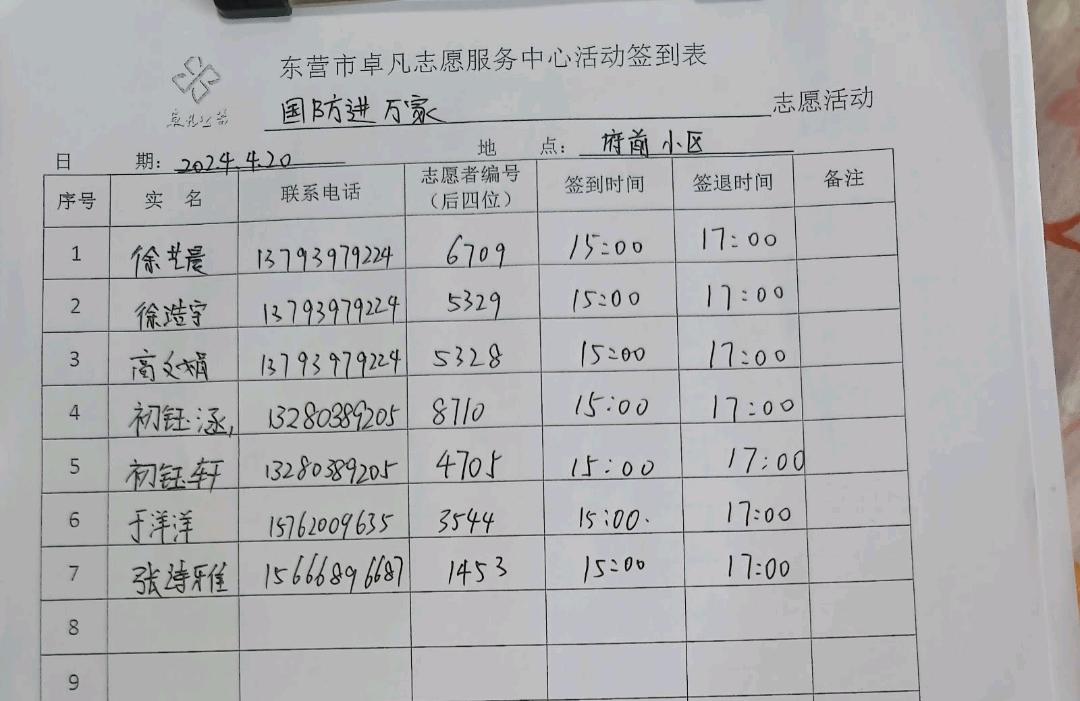 东营市卓凡志愿服务中心活动签到表
卓凡公益
国防进万家 志愿活动
日 期: 2024.4.20 地 点: 府前小区
序号 实 名 联系电话 志愿者编号（后四位） 签到时间 签退时间 备注
1 徐艺晨 13793979224 6709 15:00 17:00
2 徐浩宇 13793979224 5329 15:00 17:00
3 高文娟 13793979224 5328 15:00 17:00
4 初钰涵 13280389205 8710 15:00 17:00
5 初钰轩 13280389205 4705 15:00 17:00
6 于洋洋 15762009635 3544 15:00 17:00
7 张诗雅 15666896687 1453 15:00 17:00
8
9